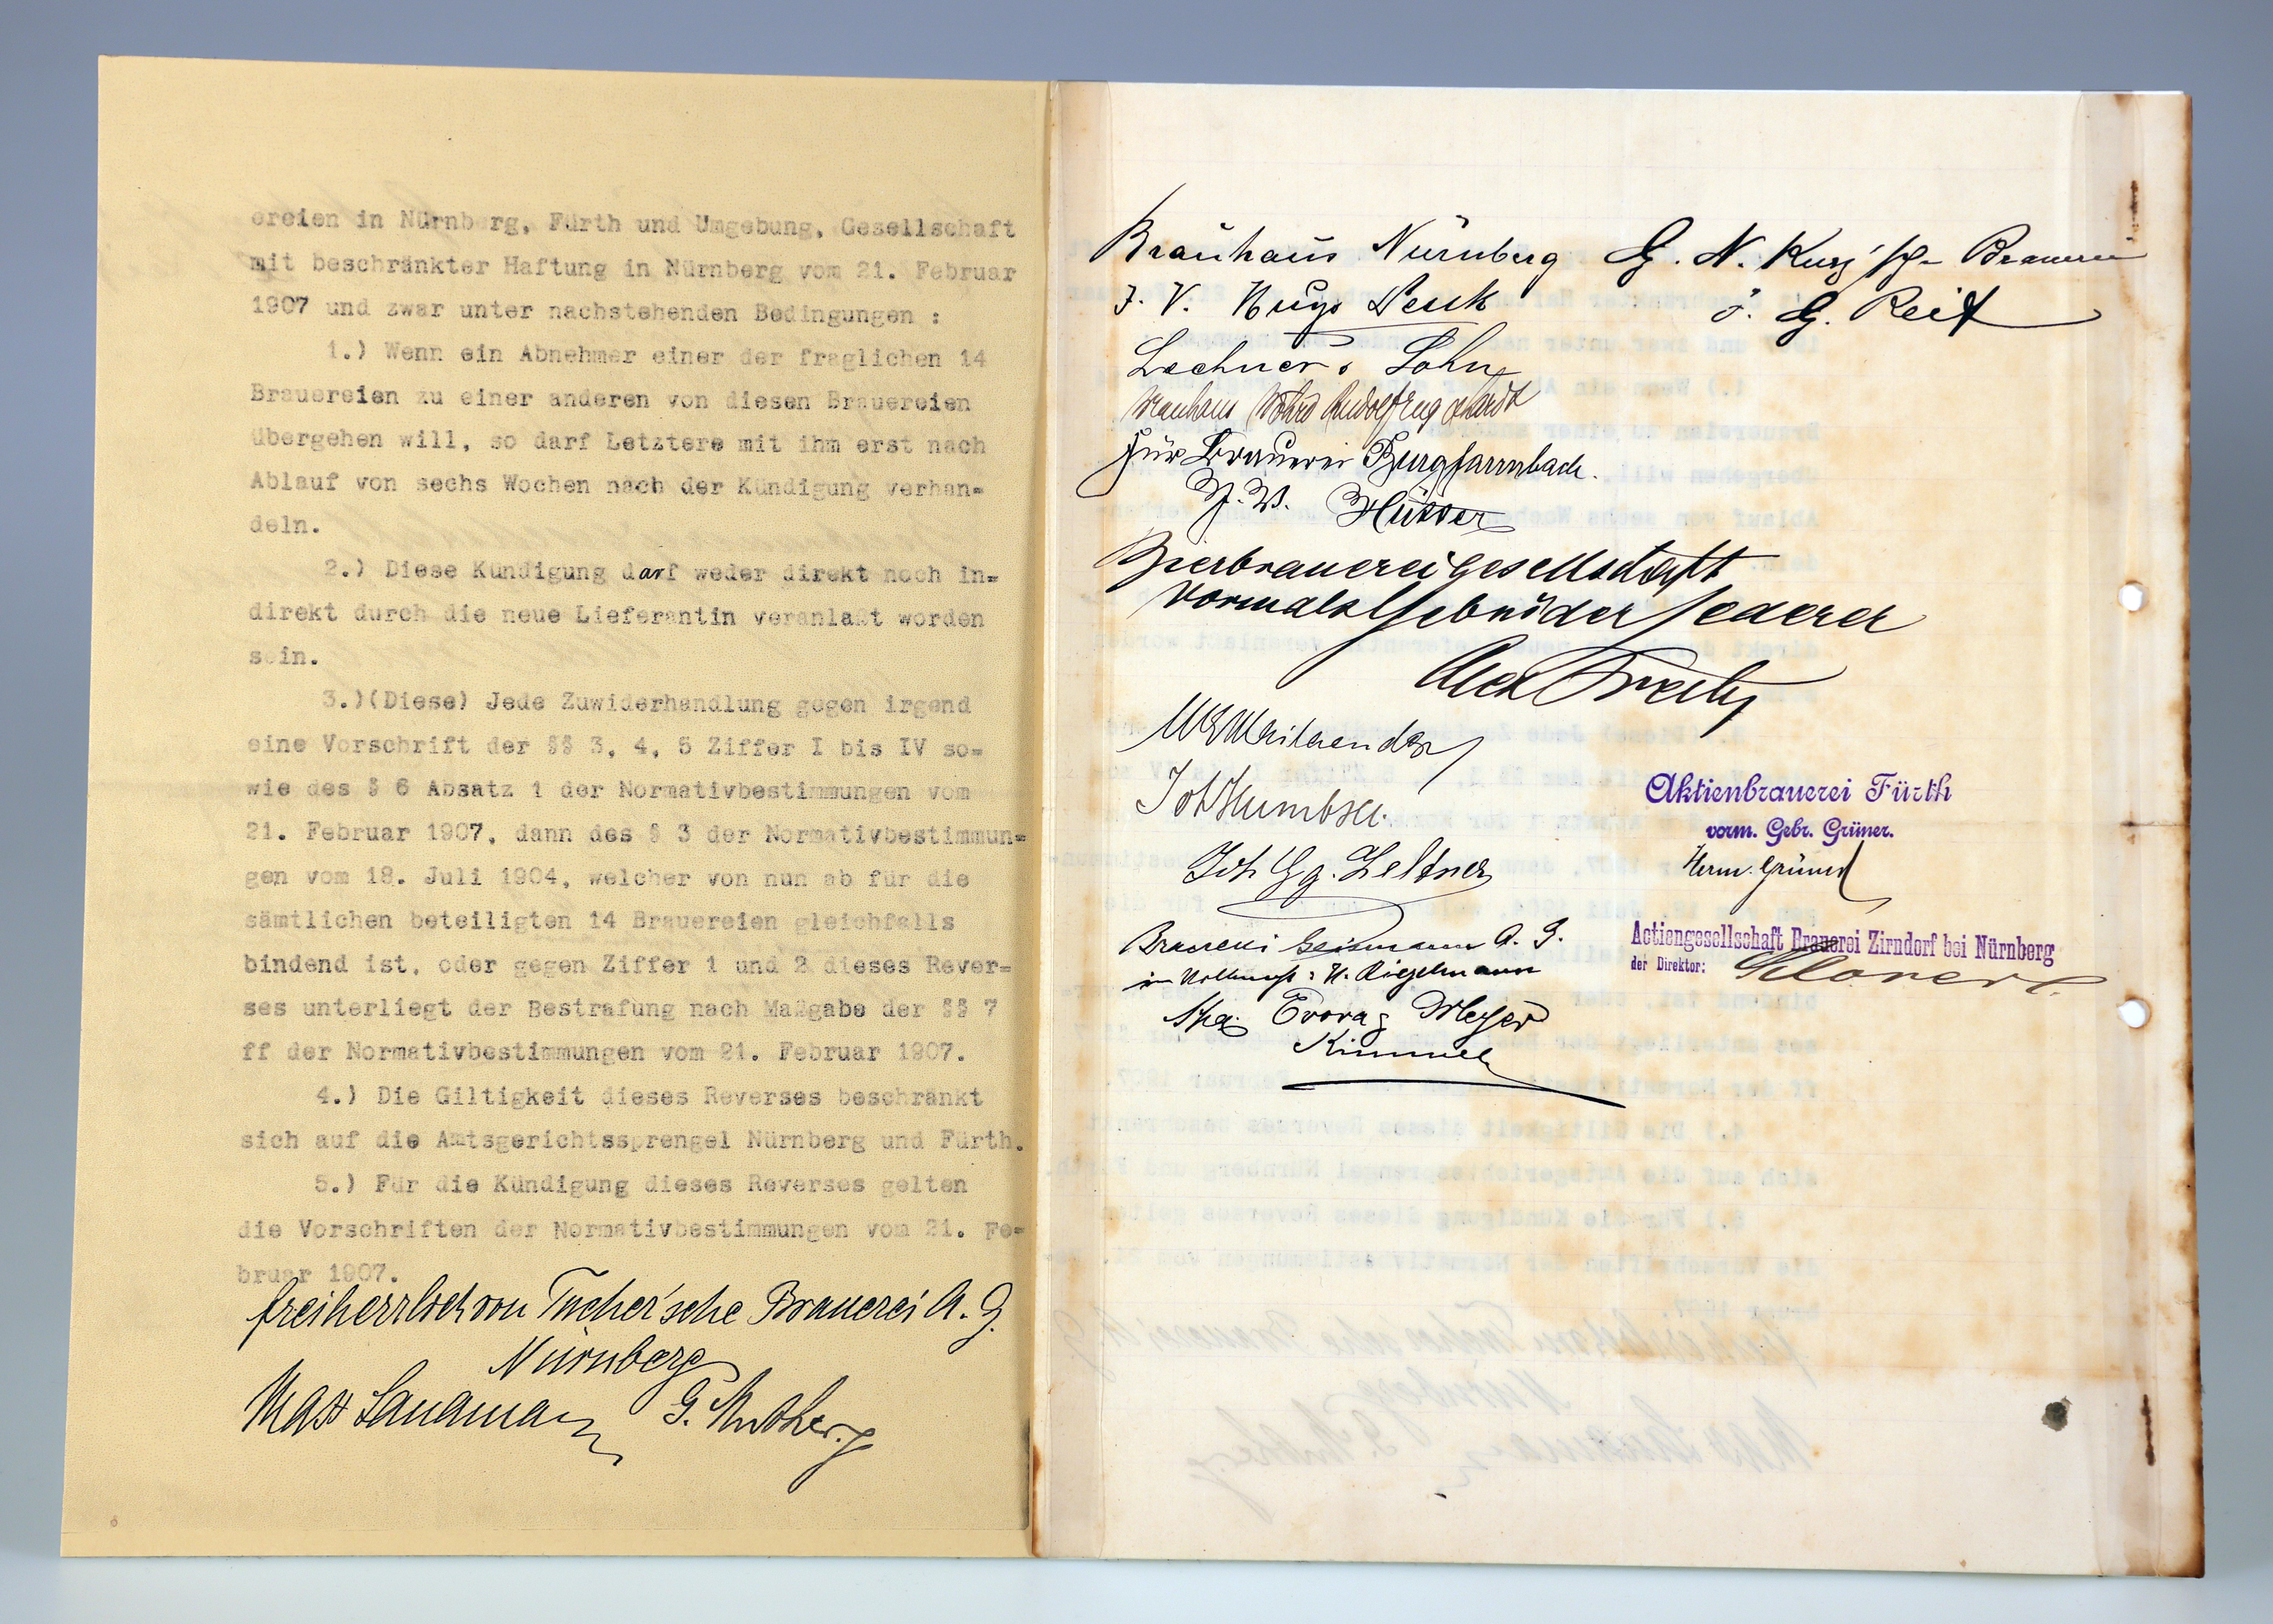 ereien in Nürnberg, Fürth und Umgebung, Gesellschaft
mit beschränkter Haftung in Nürnberg vom 21. Februar
1907 und zwar unter nachstehenden Bedingungen :
1.) Wenn ein Abnehmer einer der fraglichen 14
Brauereien zu einer anderen von diesen Brauereien
übergehen will, so darf Letztere mit ihm erst nach
Ablauf von sechs Wochen nach der Kündigung verhan=
deln.
2.) Diese Kündigung darf weder direkt noch in=
direkt durch die neue Lieferantin veranlaßt worden
sein.
3.)(Diese) Jede Zuwiderhandlung gegen irgend
eine Vorschrift der §§ 3, 4, 5 Ziffer I bis IV so=
wie des § 6 Absatz 1 der Normativbestimmungen vom
21. Februar 1907, dann des § 3 der Normativbestimmun=
gen vom 18. Juli 1904, welcher von nun ab für die
sämtlichen beteiligten 14 Brauereien gleichfalls
bindend ist, oder gegen Ziffer 1 und 2 dieses Rever=
ses unterliegt der Bestrafung nach Maßgabe der §§ 7
ff der Normativbestimmungen vom 21. Februar 1907.
4.) Die Giltigkeit dieses Reverses beschränkt
sich auf die Amtsgerichtssprengel Nürnberg und Fürth.
5.) Für die Kündigung dieses Reverses gelten
die Vorschriften der Normativbestimmungen vom 21. Fe=
bruar 1907.
freiherrlich von Tucher'sche Brauerei A. G.
Nürnberg
Brauhaus Nürnberg
G. N. Kurz'sche Brauerei
J. G. Reif
Lechner & Sohn
Für Brauerei Burgfarrnbach.
Bierbrauereigesellschaft
vormals Gebrüder Lederer
Joh Humbser.
Joh Gg. Zeltner
Brauerei Geismann A. G.
Aktienbrauerei Fürth
vorm. Gebr. Grüner.
Herm. Grüner
Actiengesellschaft Brauerei Zirndorf bei Nürnberg
der Direktor: